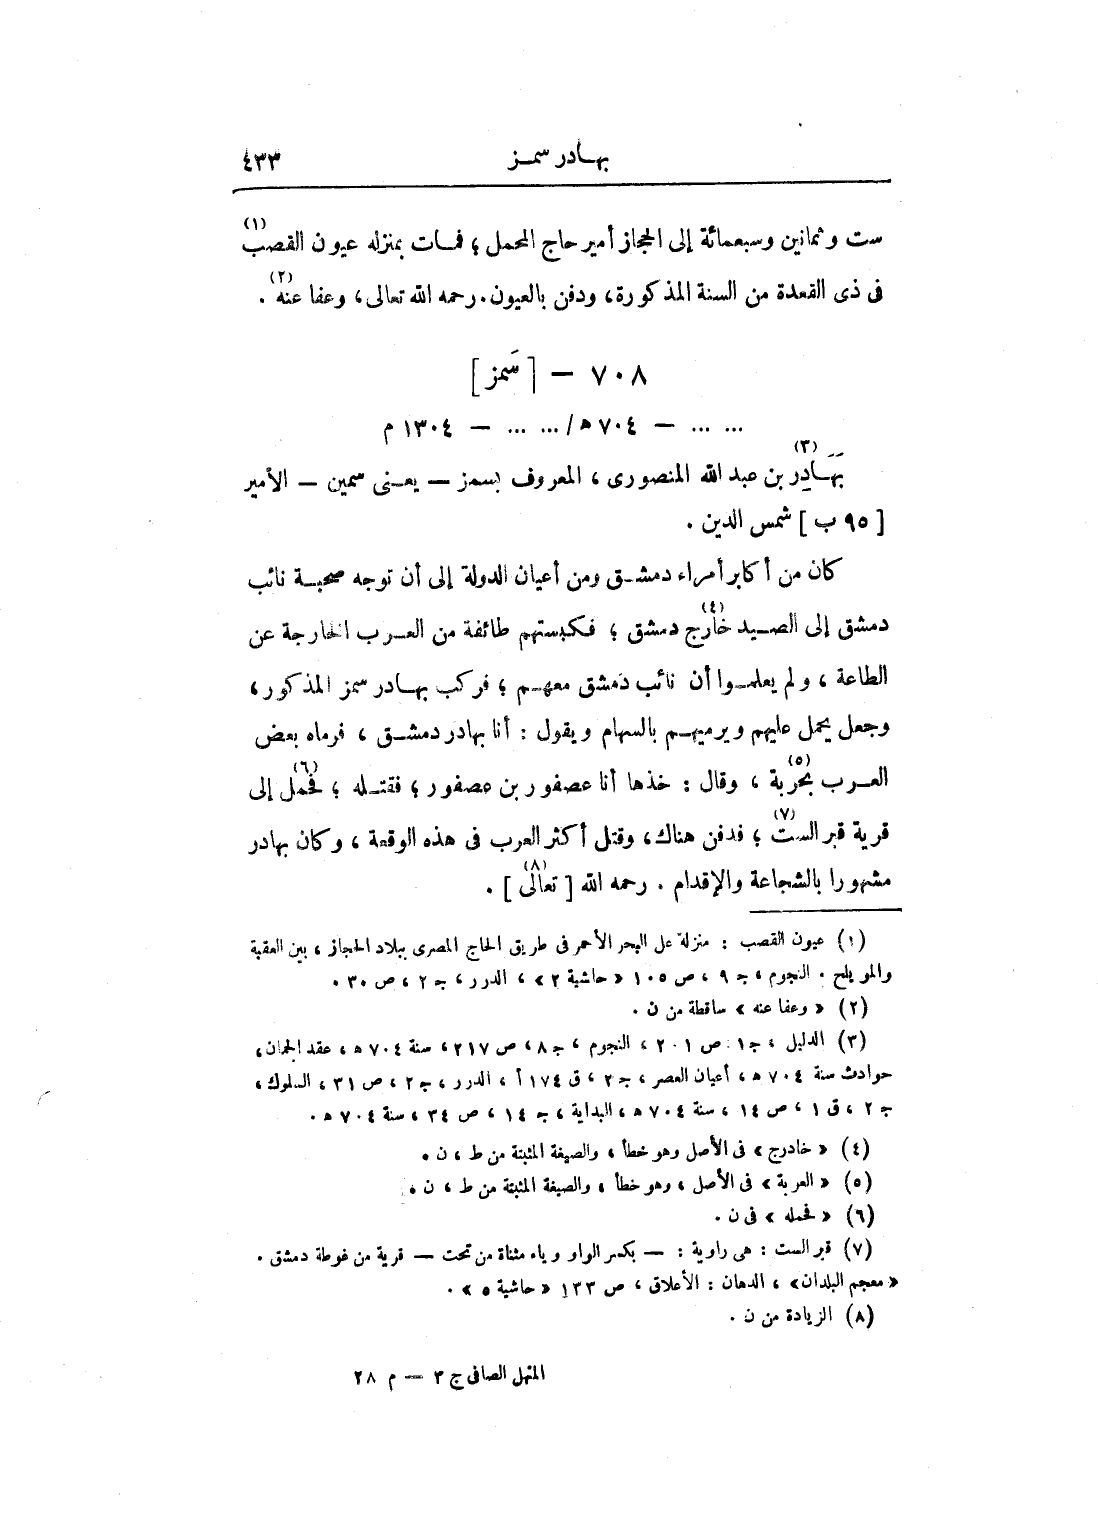 بهادر سمز ٤٣٣
ست وثمانين وسبعمائة إلى الحجاز أمير حاج المحمل ؛ فمات بمنزله عيون القصب (١)
فى ذى القعدة من السنة المذكورة، ودفن بالعيون. رحمه الله تعالى، وعفا عنه (٢) .
٧٠٨ — [ سَمز ]
... ... — ٧٠٤ ه / ... ... — ١٣٠٤ م
بَهَادِر (٣) بن عبد الله المنصورى ، المعروف بسمز — يعنى سمين — الأمير
[ ٩٥ ب ] شمس الدين .
كان من أكابر أمراء دمشق ومن أعيان الدولة إلى أن توجه صحبة نائب
دمشق إلى الصيد خارج (٤) دمشق ؛ فكبستهم طائفة من العرب الخارجة عن
الطاعة ، ولم يعلموا أن نائب دمشق معهم ؛ فركب بهادر سمز المذكور،
وجعل يحمل عليهم ويرميهم بالسهام ويقول : أنا بهادر دمشق ، فرماه بعض
العرب بحربة (٥) ، وقال : خذها أنا عصفور بن عصفور ؛ فقتله ؛ فحمل (٦) إلى
قرية قبر الست (٧) ؛ فدفن هناك، وقتل أكثر العرب فى هذه الوقعة ، وكان بهادر
مشهورا بالشجاعة والإقدام . رحمه الله [ تعالى (٨) ] .
(١) عيون القصب : منزلة على البحر الأحمر فى طريق الحاج المصرى ببلاد الحجاز ، بين العقبة
والمويلح . النجوم ، ج ٩ ، ص ١٠٥ « حاشية ٢ » ، الدرر ، ج ٢ ، ص ٣٠ .
(٢) « وعفا عنه » ساقطة من ن .
(٣) الدليل ، ج ١ ص ٢٠١ ، النجوم ، ج ٨ ، ص ٢١٧ ، سنة ٧٠٤ ه ، عقد الجمان ،
حوادث سنة ٧٠٤ ه ، أعيان العصر ، ج ٢ ، ق ١٧٤ أ ، الدرر ، ج ٢ ، ص ٣١ ، السلوك ،
ج ٢ ، ق ١ ، ص ١٤ ، سنة ٧٠٤ ه ، البداية ، ج ١٤ ، ص ٣٤ ، سنة ٧٠٤ ه .
(٤) « خادرج » فى الأصل وهو خطأ ، والصيغة المثبتة من ط ، ن .
(٥) « العربة » فى الأصل ، وهو خطأ ، والصيغة المثبتة من ط ، ن .
(٦) « فحمله » فى ن .
(٧) قبر الست : هى راوية : — بكسر الواو وياء مثناة من تحت — قرية من غوطة دمشق .
« معجم البلدان » ، الدهان : الأعلاق ، ص ١٣٣ « حاشية ٥ » .
(٨) الزيادة من ن .
المنهل الصافى ج ٣ — م ٢٨